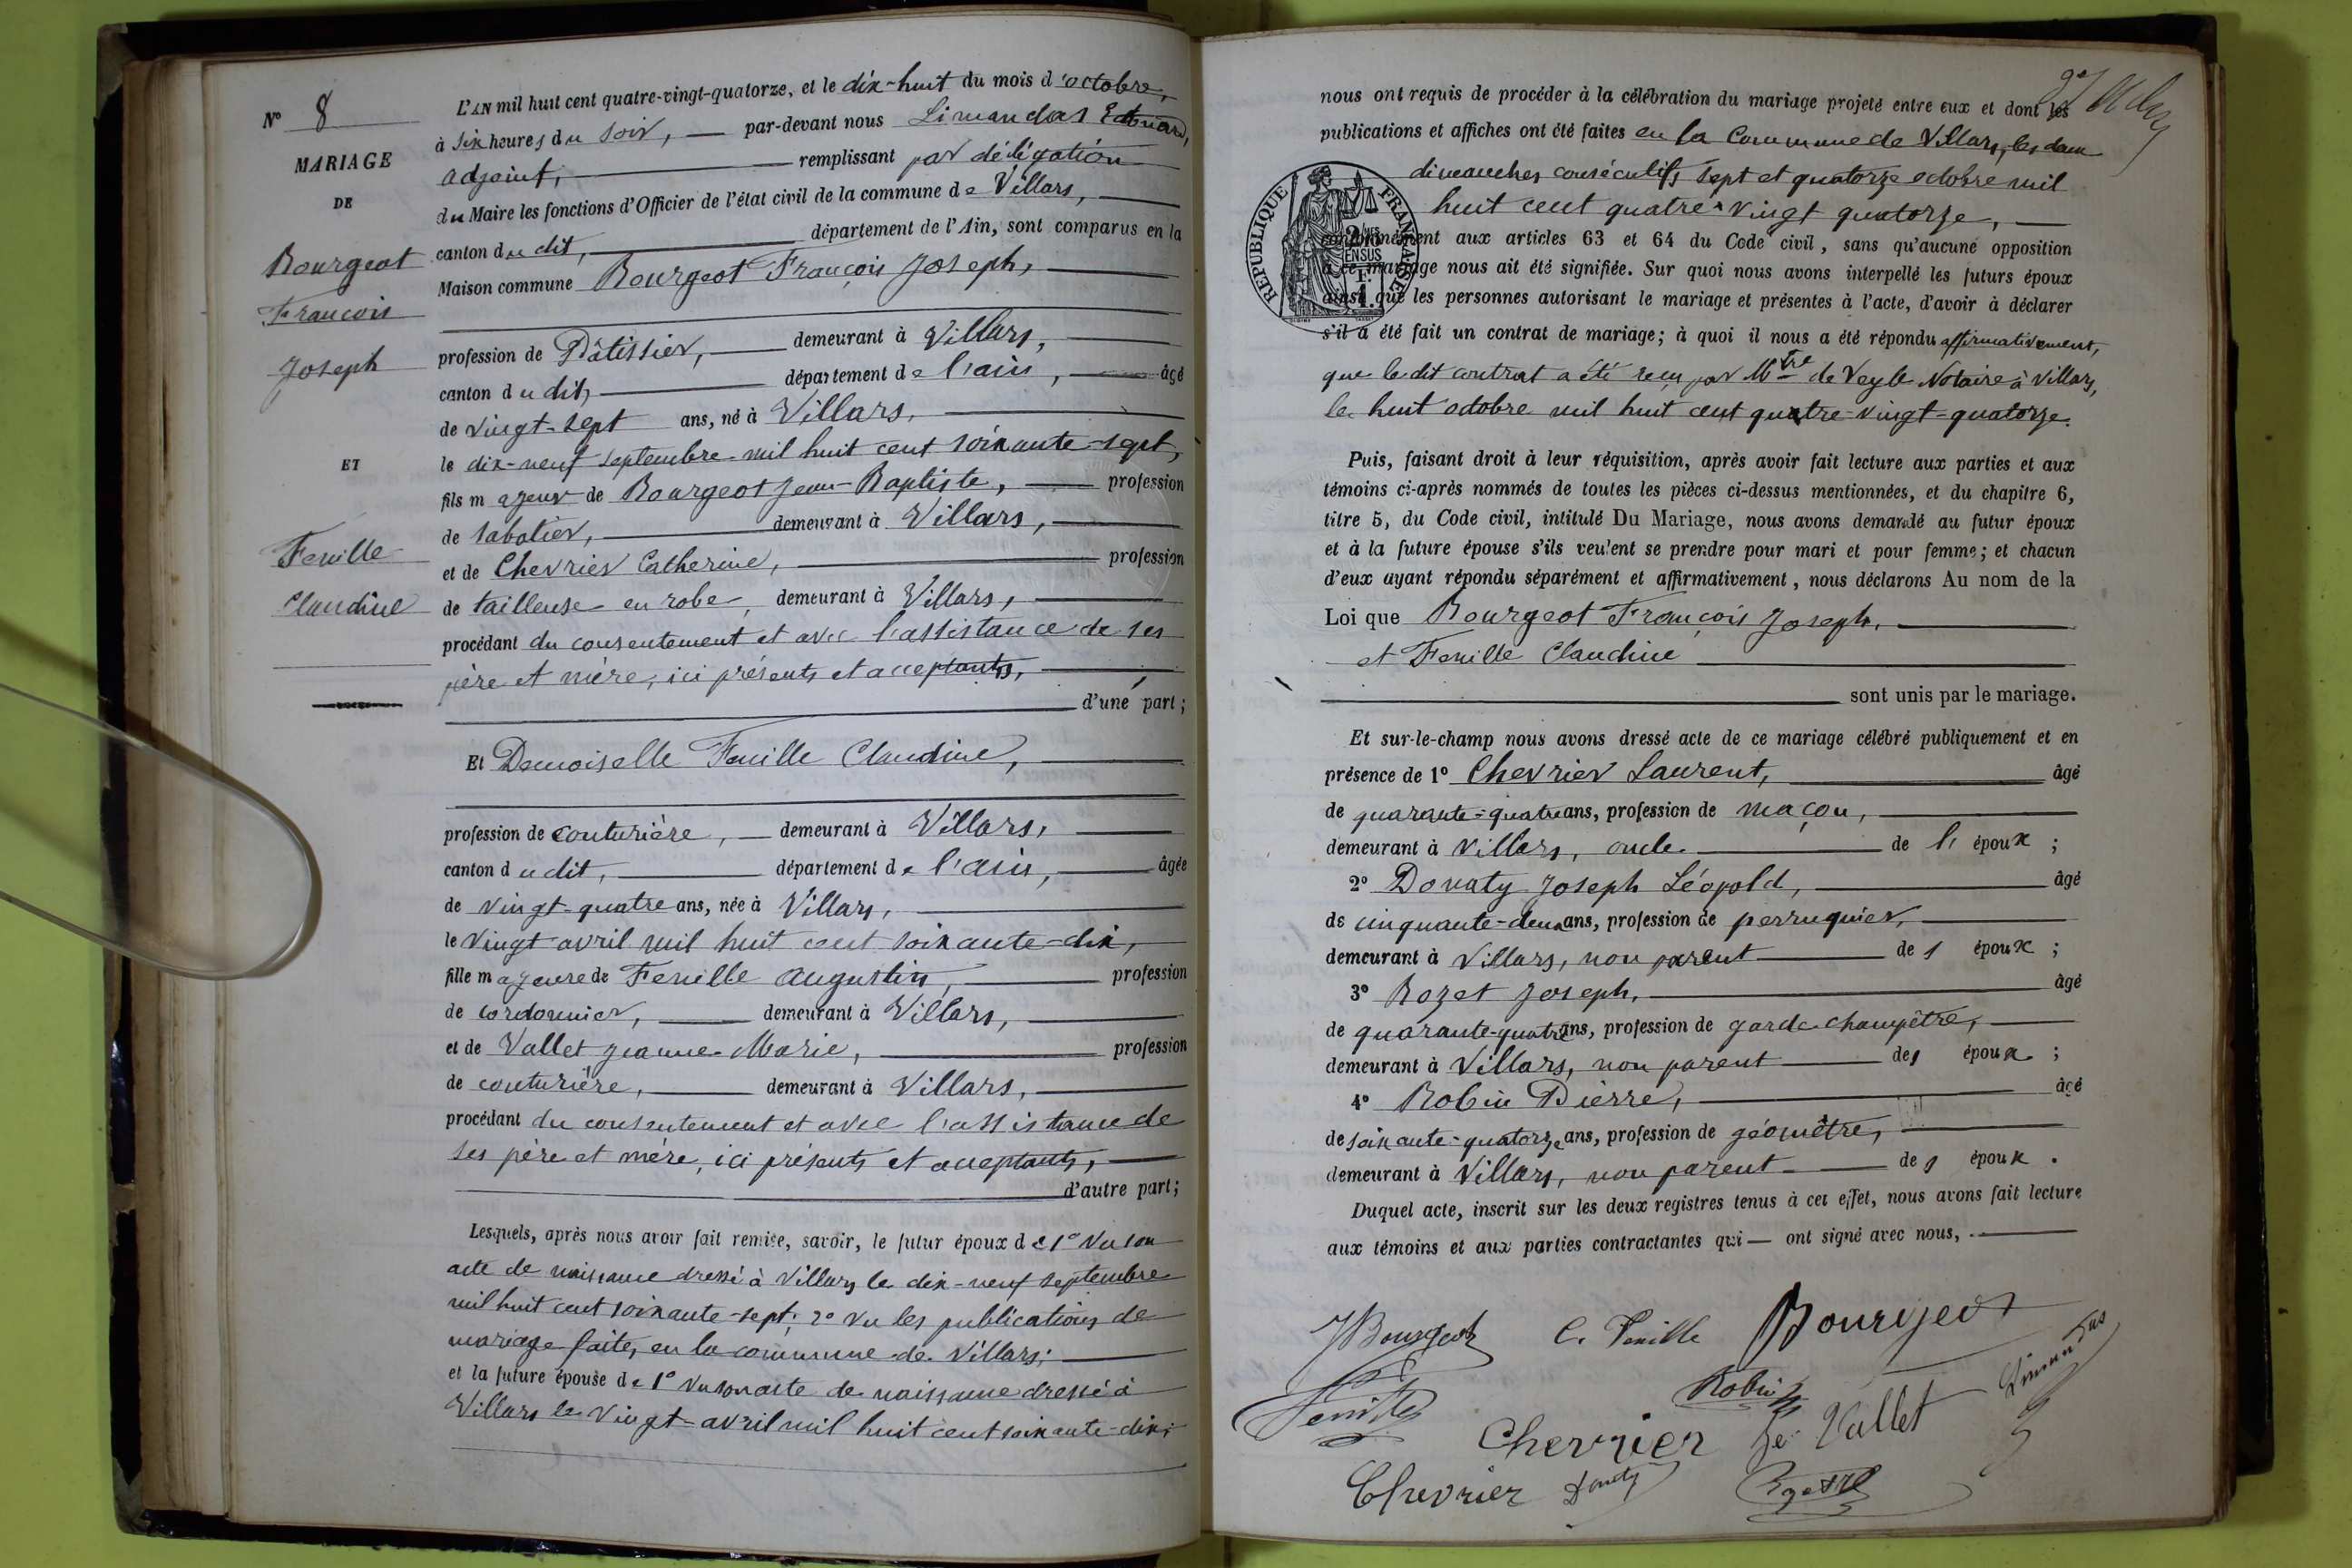 N° 8
MARIAGE
DE
Bourgeot
François
Joseph
ET
Feuille
Claudine
L'AN mil huit cent quatre-vingt-quatorze, et le dix-huit du mois d'octobre,
à six heures du soir, par-devant nous Limandas Edouard,
adjoint, remplissant par délégation
du Maire les fonctions d'Officier de l'état civil de la commune de Villars,
canton du dit, département de l'Ain, sont comparus en la
Maison commune Bourgeot François Joseph,
profession de Pâtissier, demeurant à Villars,
canton du dit, département de l'ain, âgé
de vingt-sept ans, né à Villars,
le dix-neuf septembre mil huit cent soixante-sept,
fils majeur de Bourgeot Jean-Baptiste, profession
de sabotier, demeurant à Villars,
et de Chevrier Catherine, profession
de tailleuse en robe, demeurant à Villars,
procédant du consentement et avec l'assistance de ses
père et mère, ici présents et acceptants,
d'une part;
Et Demoiselle Feuille Claudine,
profession de couturière, demeurant à Villars,
canton du dit, département de l'ain, âgée
de vingt-quatre ans, née à Villars,
le vingt avril mil huit cent soixante-dix,
fille majeure de Feuille Augustin, profession
de cordonnier, demeurant à Villars,
et de Vallet Jeanne-Marie, profession
de couturière, demeurant à Villars,
procédant du consentement et avec l'assistance de
ses père et mère, ici présents et acceptants,
d'autre part;
Lesquels, après nous avoir fait remise, savoir, le futur époux de 1° Vu son
acte de naissance dressé à Villars le dix-neuf septembre
mil huit cent soixante-sept; 2° Vu les publications de
mariage faites en la commune de Villars;
et la future épouse de 1° Vu son acte de naissance dressé à
Villars le vingt avril mil huit cent soixante-dix;
nous ont requis de procéder à la célébration du mariage projeté entre eux et dont les
publications et affiches ont été faites en la Commune de Villars, les deux
dimanches consécutifs sept et quatorze octobre mil
huit cent quatre-vingt quatorze,
RÉPUBLIQUE FRANÇAISE
conformément aux articles 63 et 64 du Code civil, sans qu'aucune opposition
à ce mariage nous ait été signifiée. Sur quoi nous avons interpellé les futurs époux
ainsi que les personnes autorisant le mariage et présentes à l'acte, d'avoir à déclarer
s'il a été fait un contrat de mariage; à quoi il nous a été répondu affirmativement,
que le dit contrat a été reçu par Mtre de Veyle Notaire à Villars,
le huit octobre mil huit cent quatre-vingt-quatorze.
Puis, faisant droit à leur réquisition, après avoir fait lecture aux parties et aux
témoins ci-après nommés de toutes les pièces ci-dessus mentionnées, et du chapitre 6,
titre 5, du Code civil, intitulé Du Mariage, nous avons demandé au futur époux
et à la future épouse s'ils veulent se prendre pour mari et pour femme; et chacun
d'eux ayant répondu séparément et affirmativement, nous déclarons Au nom de la
Loi que Bourgeot François Joseph,
et Feuille Claudine
sont unis par le mariage.
Et sur-le-champ nous avons dressé acte de ce mariage célébré publiquement et en
présence de 1° Chevrier Laurent, âgé
de quarante-quatre ans, profession de maçon,
demeurant à Villars, oncle de l' époux ;
2° Donaty Joseph Léopold, âgé
de cinquante-deux ans, profession de perruquier,
demeurant à Villars, non parent des époux ;
3° Rozet Joseph, âgé
de quarante-quatre ans, profession de garde-champêtre,
demeurant à Villars, non parent des époux ;
4° Robin Pierre, âgé
de soixante-quatorze ans, profession de géomètre,
demeurant à Villars, non parent des époux .
Duquel acte, inscrit sur les deux registres tenus à cet effet, nous avons fait lecture
aux témoins et aux parties contractantes qui ont signé avec nous,
JBourgeot C. Feuille Bourgeot
Feuille Robin Limandas
Chevrier Vallet
Chevrier Donaty